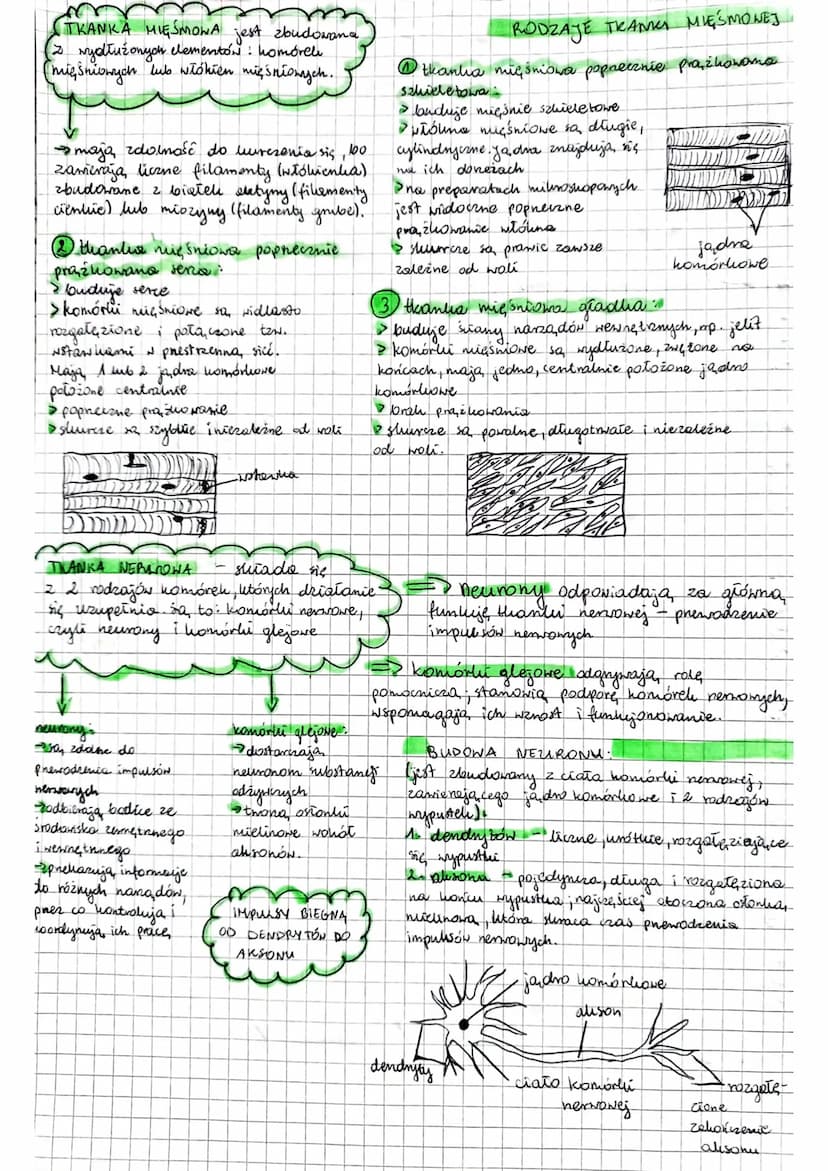 TKANKA MIĘŚNIOWA jest zbudowana
z wydłużonych elementów: komórek
mięśniowych lub włókien mięśniowych.
→ mają zdolność do kurczenia się, bo
zawierają liczne filamenty (włókienka)
zbudowane z białek aktyny (filamenty
cienkie) lub miozyny (filamenty grube).
RODZAJE TKANKI MIĘŚNIOWEJ
1 tkanka mięśniowa poprzecznie prążkowana
szkieletowa:
> buduje mięśnie szkieletowe
> włókna mięśniowe są długie,
cylindryczne. Jądra znajdują się
na ich
> na preparatach mikroskopowych
jest widoczne poprzeczne
prążkowanie włókna
> skurcze są prawie zawsze
zależne od woli
jądra
komórkowe
2 tkanka mięśniowa poprzecznie
prążkowana serca:
> buduje serce
> komórki mięśniowe są widlasto
rozgałęzione i połączone tzw.
wstawkami w przestrzenną sieć.
Mają 1 lub 2 jądra komórkowe
położone centralnie
> poprzeczne prążkowanie
> skurcze są szybkie i niezależne od woli
wstawka
3 tkanka mięśniowa gładka:
> buduje ściany narządów wewnętrznych, np. jelit
> komórki mięśniowe są wydłużone, zwężone na
końcach, mają jedno, centralnie położone jądro
komórkowe
> brak prążkowania
> skurcze są powolne, długotrwałe i niezależne
od woli.
TKANKA NERWOWA – składa się
z 2 rodzajów komórek, których działanie
się uzupełnia. Są to: komórki nerwowe,
czyli neurony i komórki glejowe
⇒ neurony odpowiadają za główną
funkcję tkanki nerwowej – przewodzenie
impulsów nerwowych
⇒ komórki glejowe odgrywają rolę
pomocniczą; stanowią podporę komórek nerwowych,
wspomagają ich wzrost i funkcjonowanie.
neurony:
→ są zdolne do
przewodzenia impulsów
nerwowych
→ odbierają bodźce ze
środowiska zewnętrznego
i wewnętrznego
→ przekazują informacje
do różnych narządów,
przez co kontrolują i
koordynują ich pracę
komórki glejowe:
→ dostarczają
neuronom substancji
odżywczych
→ tworzą osłonki
mielinowe wokół
aksonów.
IMPULSY BIEGNĄ
OD DENDRYTÓW DO
AKSONU
BUDOWA NEURONU:
(jest zbudowany z ciała komórki nerwowej,
zawierającego jądro komórkowe i 2 rodzajów
wypustek):
1. dendrytów – liczne, krótkie, rozgałęziające
się wypustki
2. aksona – pojedyncza, długa i rozgałęziona
na końcu wypustka; najczęściej otoczona osłonką
mielinową, która skraca czas przewodzenia
impulsów nerwowych.
jądro komórkowe
akson
dendryty
ciało komórki
nerwowej
rozgałę-
zione
zakończenie
aksonu